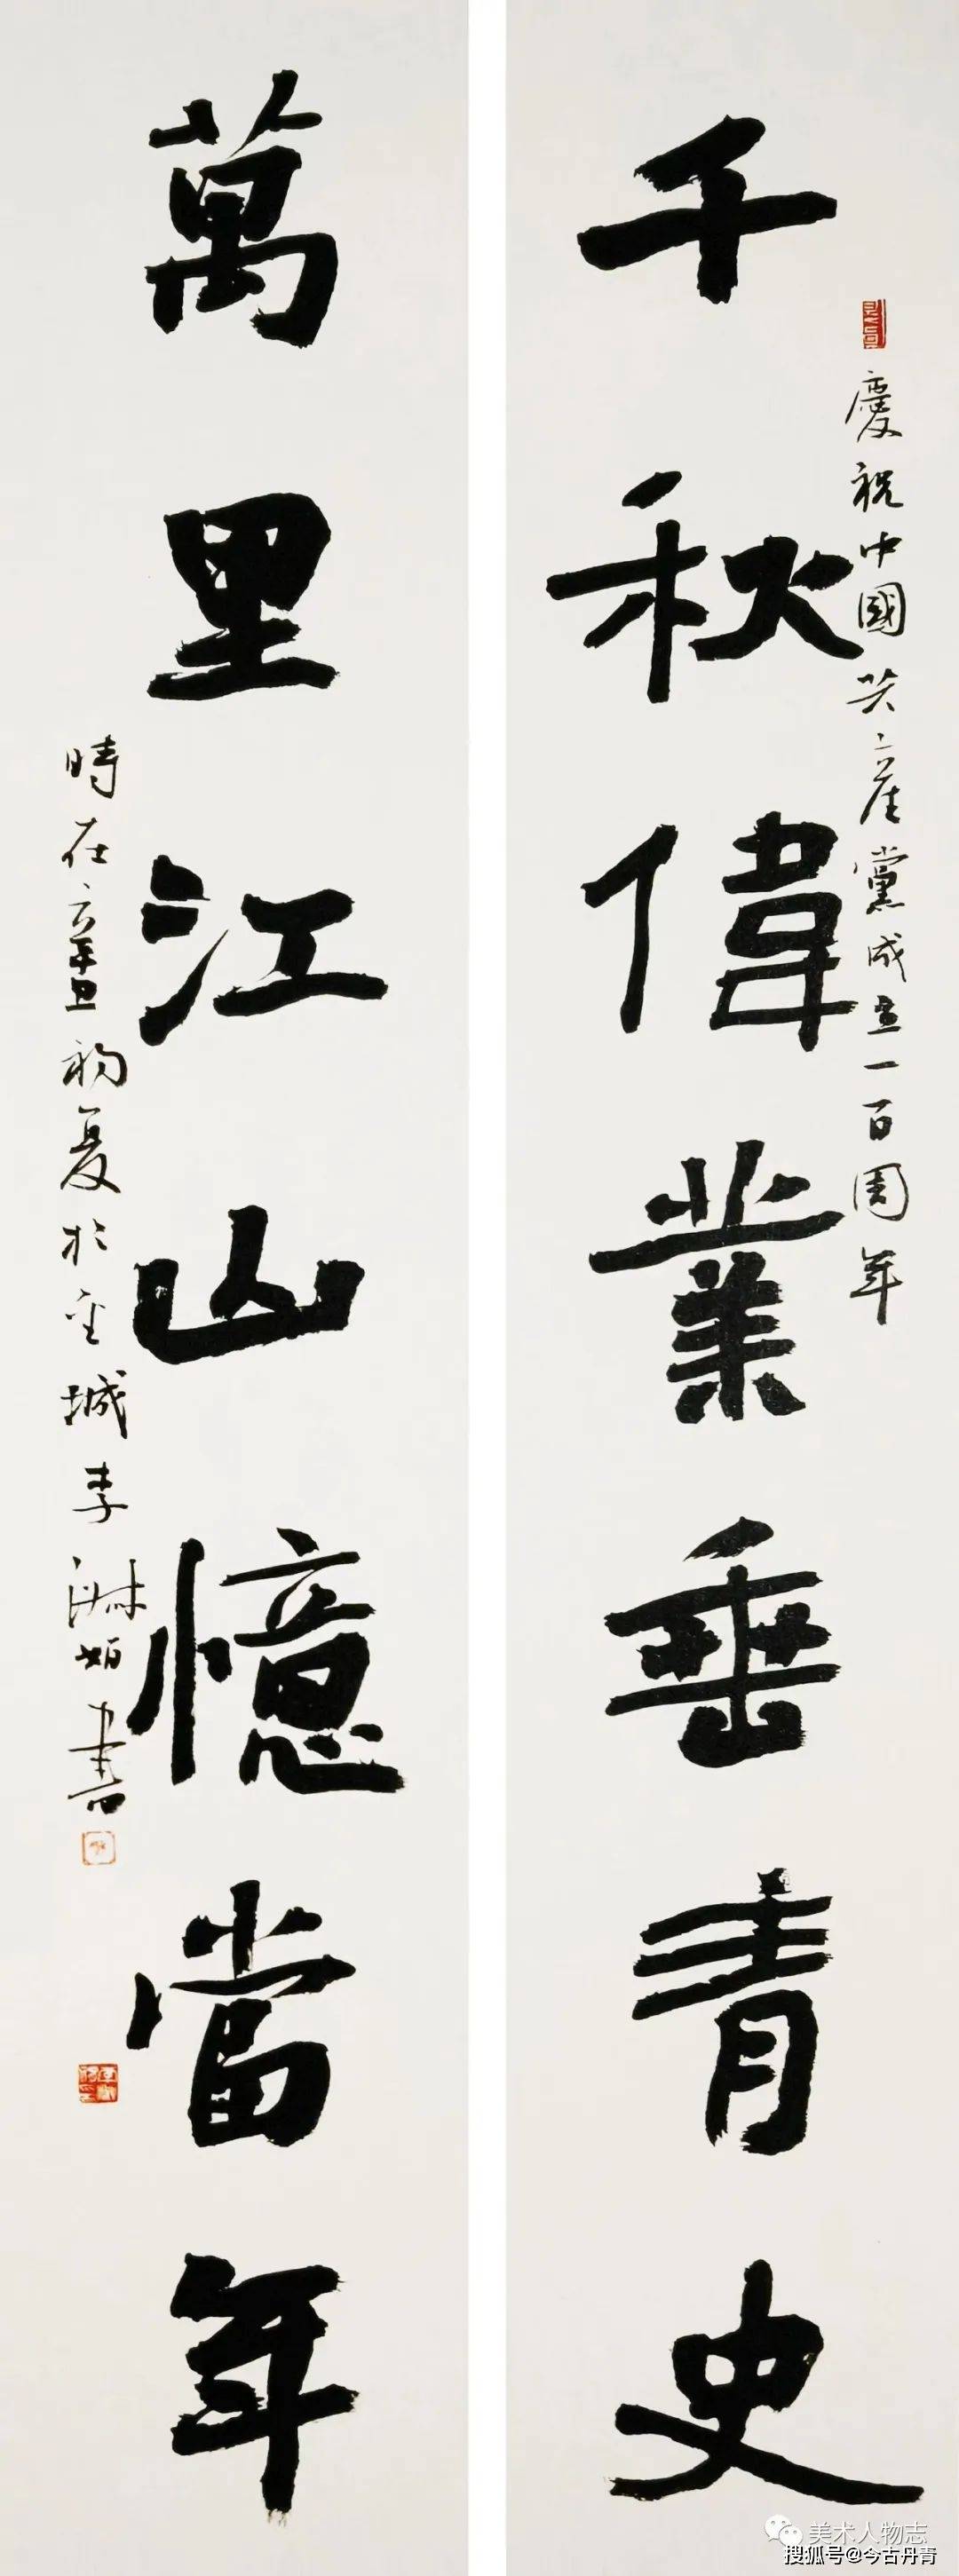 慶祝中國共產黨成立一百周年
千秋偉業垂青史
萬里江山憶當年
時在辛丑初夏於金城李淋如書
美术人物志
搜狐号@今古丹青